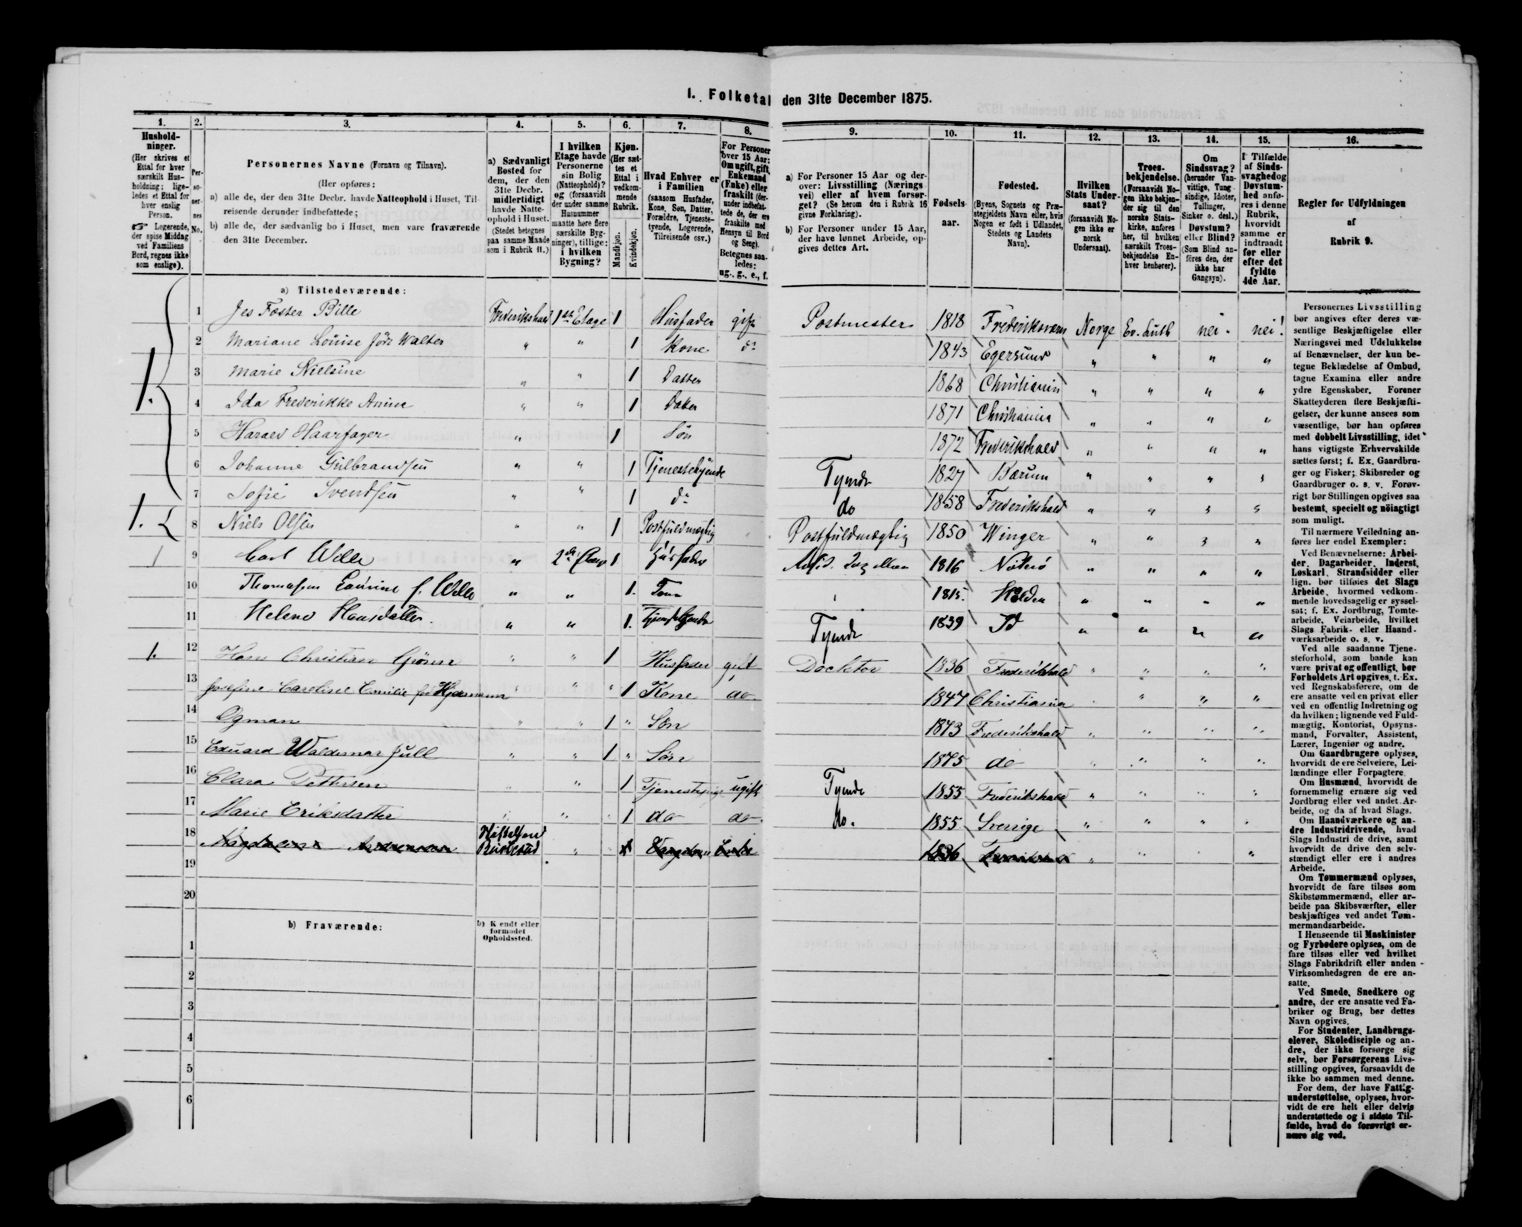 1. Folketal den 31te December 1875.
1.
Hushold-
ninger.
(Her skrives et
Ettal for hver
særskilt Hus-
holdning; lige-
ledes et Ettal for
hver enslig
Person.
☞ Logerende,
der spise Middag
ved Familiens
Bord, regnes ikke
som enslige).
2.
Per-
so-
ner-
nes
No.
3.
Personernes Navne (Fornavn og Tilnavn).
(Her opføres:
a) alle de, der den 31te Decbr. havde Natteophold i Huset, Til-
reisende derunder indbefattede;
b) alle de, der sædvanlig bo i Huset, men vare fraværende
den 31te December.
4.
a) Sædvanligt
Bosted for
dem, der den
31te Decbr.
midlertidigt
havde Natte-
ophold i Huset.
(Stedet betegnes
paa samme Maade
som i Rubrik 11.)
5.
I hvilken
Etage havde
Personerne
sin Bolig
(Natteophold)?
og (forsaavidt
der under samme
Husnummer
maatte høre flere
særskilte Byg-
ninger), tillige:
i hvilken
Bygning?
6.
Kjøn.
(Her sæt-
tes et
Ettal i
vedkom-
mende
Rubrik.
Mandkjøn.
Kvindekjøn.
7.
Hvad Enhver er
i Familien
(saasom Husfader,
Kone, Søn, Datter,
Forældre, Tjeneste-
tyende, Logerende,
Tilreisende osv.).
8.
For Personer
over 15 Aar:
Om ugift, gift,
Enkemand
(Enke) eller
fraskilt (der-
under indbefat-
tede de, der ere
fraskilte med
Hensyn til Bord
og Seng).
Betegnes saa-
ledes:
ug., g., e., f.
9.
a) For Personer 15 Aar og der-
over: Livsstilling (Nærings-
vei) eller af hvem forsør-
get? (Se herom den i Rubrik 16
givne Forklaring).
b) For Personer under 15 Aar,
der have lønnet Arbeide, op-
gives dettes Art.
10.
Fødsels-
aar.
11.
Fødested.
(Byens, Sognets og Præ-
stegjeldets Navn eller, hvis
Nogen er født i Udlandet,
Stedets og Landets
Navn).
12.
Hvilken
Stats Under-
saat?
(forsaavidt No-
gen ikke er
norsk
Undersaat).
13.
Troes-
bekjendelse.
(Forsaavidt No-
gen ikke bekjen-
der sig til den
norske Stats-
kirke, an-
føres her,
til hvilken
særskilt Troes-
bekjendelse En-
hver henhører).
14.
Om
Sindssvag?
(herunder Van-
vittige, Tung-
sindige, Idioter,
Tullinger,
Sinker o. desl.)
Døvstum?
eller Blind?
(Som Blind an-
føres den, der
ikke har
Gangsyn).
15.
I Tilfælde
af Sinds-
svaghed og
Døvstum-
hed anfø-
res i denne
Rubrik,
hvorvidt
samme er
indtraadt
før eller
efter det
fyldte
4de Aar.
16.
Regler for Udfyldningen
af
Rubrik 9.
a) Tilstedeværende:
1. 1 Jes Foster Bille Frederikshald 1ste Etage 1 Husfader gift Postmester 1818 Frederiksværn Norge Ev. Luth nei. nei!
2 Mariane Louise født Walter " " 1 Kone do 1843 Egersund " " " "
3 Marie Nielsine " " 1 Datter 1868 Christiania " " " "
4 Ida Frederikke Anine " " 1 Datter 1871 Christiania " " " "
5 Harald Haarfager " 1 Søn 1872 Frederikshald " " " "
6 Johanne Gulbrandsen " " 1 Tjenestetyende Tyende 1827 Bærum " " " "
7 Sofie Svendsen " " 1 do do 1858 Frederikshald " " " "
1. 8 Niels Olsen " " 1 Postfuldmægtig Postfuldmægtig 1850 Winger " " " "
1 9 Carl Wille " 2den Etage 1 Husfader 1816 " " " "
10 Thomasen Laurine f. Wille " " 1. 1815. " " " "
11 Helene Hansdatter. " " 1. Tjenestetyende Tyende 1839 Id " " " "
1. 12 Hans Christian " " 1 Husfader gift Docktor 1836 Frederikshald " " " "
13 Josefine Caroline Emilie født " " 1 Kone do 1847 Christiania " " "
14 Ogman " " 1 " Søn 1873 Frederikshald " " " "
15 Eduard Waldemar Jull " " 1 " Søn 1875 do " " " "
16 Clara Pettersen " " 1 Tjenestepige ugift Tyende 1855 Frederikshald " " " "
17 Marie Eriksdatter " " 1 do do do. 1855 Sverige " " " "
18 1836 " " " "
19
20
b) Fraværende:
b) Kendt eller
formodet
Opholdssted.
1
2
3
4
5
6
Personernes Livsstilling
bør angives efter deres væ-
sentlige Beskjæftigelse eller
Næringsvei med Udelukkelse
af Benævnelser, der kun be-
tegne Beklædelse af Ombud,
tagne Examina eller andre
ydre Egenskaber. Forener
Skatteyderen flere Beskjæfti-
gelser, der kunne ansees som
væsentlige, bør han opføres
med dobbelt Livsstilling, idet
hans vigtigste Erhvervskilde
sættes først; f. Ex. Gaardbru-
ger og Fisker; Skibsreder og
Gaardbruger o. s. v. Forøv-
rigt bør Stillingen opgives saa
bestemt, specielt og nøiagtigt
som muligt.
Til nærmere Veiledning an-
føres her endel Exempler:
Ved Benævnelserne: Arbei-
der, Dagarbeider, Inderst,
Løskarl, Strandsidder eller
lign. bør tilføies det Slags
Arbeide, hvormed vedkom-
mende hovedsagelig er syssel-
sat; f. Ex. Jordbrug, Tomte-
arbeide, Veiarbeide, hvilket
Slags Fabrik- eller Haand-
værksarbeide o. s. v.
Ved alle saadanne Tjene-
steforhold, som baade kan
være privat og offentligt, bør
Forholdets Art opgives, t. Ex.
ved Regnskabsførere, om de
ere ansatte ved en privat eller
ved en offentlig Indretning og
da hvilken; lignende ved Fuld-
mægtig, Kontorist, Opsyns-
mand, Forvalter, Assistent,
Lærer, Ingeniør og andre.
Om Gaardbrugere oplyses,
hvorvidt de ere Selveiere, Lei-
lændinge eller Forpagtere.
Om Husmænd, hvorvidt de
fornemmelig ernære sig ved
Jordbrug eller ved andet Ar-
beide, og da af hvad Slags.
Om Haandværkere og an-
dre Industridrivende, hvad
Slags Industri de drive, samt
hvorvidt de drive den selv-
stændigt eller ere i andres
Arbeide.
Om Tømmermænd oplyses,
hvorvidt de fare tilsøs som
Skibstømmermænd, eller ar-
beide paa Skibsværfter, eller
beskjæftiges ved andet Tøm-
mermandsarbeide.
I Henseende til Maskinister
og Fyrbødere oplyses, om de
fare tilsøs eller ved hvilket
Slags Fabrikdrift eller anden
Virksomhedsgren de ere an-
satte.
Ved Smede, Snedkere og
andre, der ere ansatte ved Fa-
briker og Brug, bør dettes
Navn opgives.
For Studenter, Landbrugs-
elever, Skoledisciple og an-
dre, der ikke forsørge sig
selv, bør Forsørgerens Livs-
stilling opgives, forsaavidt de
ikke bo sammen med denne.
For dem, der have Fattig-
understøttelse, oplyses, hvor-
vidt de ere helt eller delvis
understøttede og i sidste Til-
fælde, hvad de forøvrigt er-
nære sig ved.